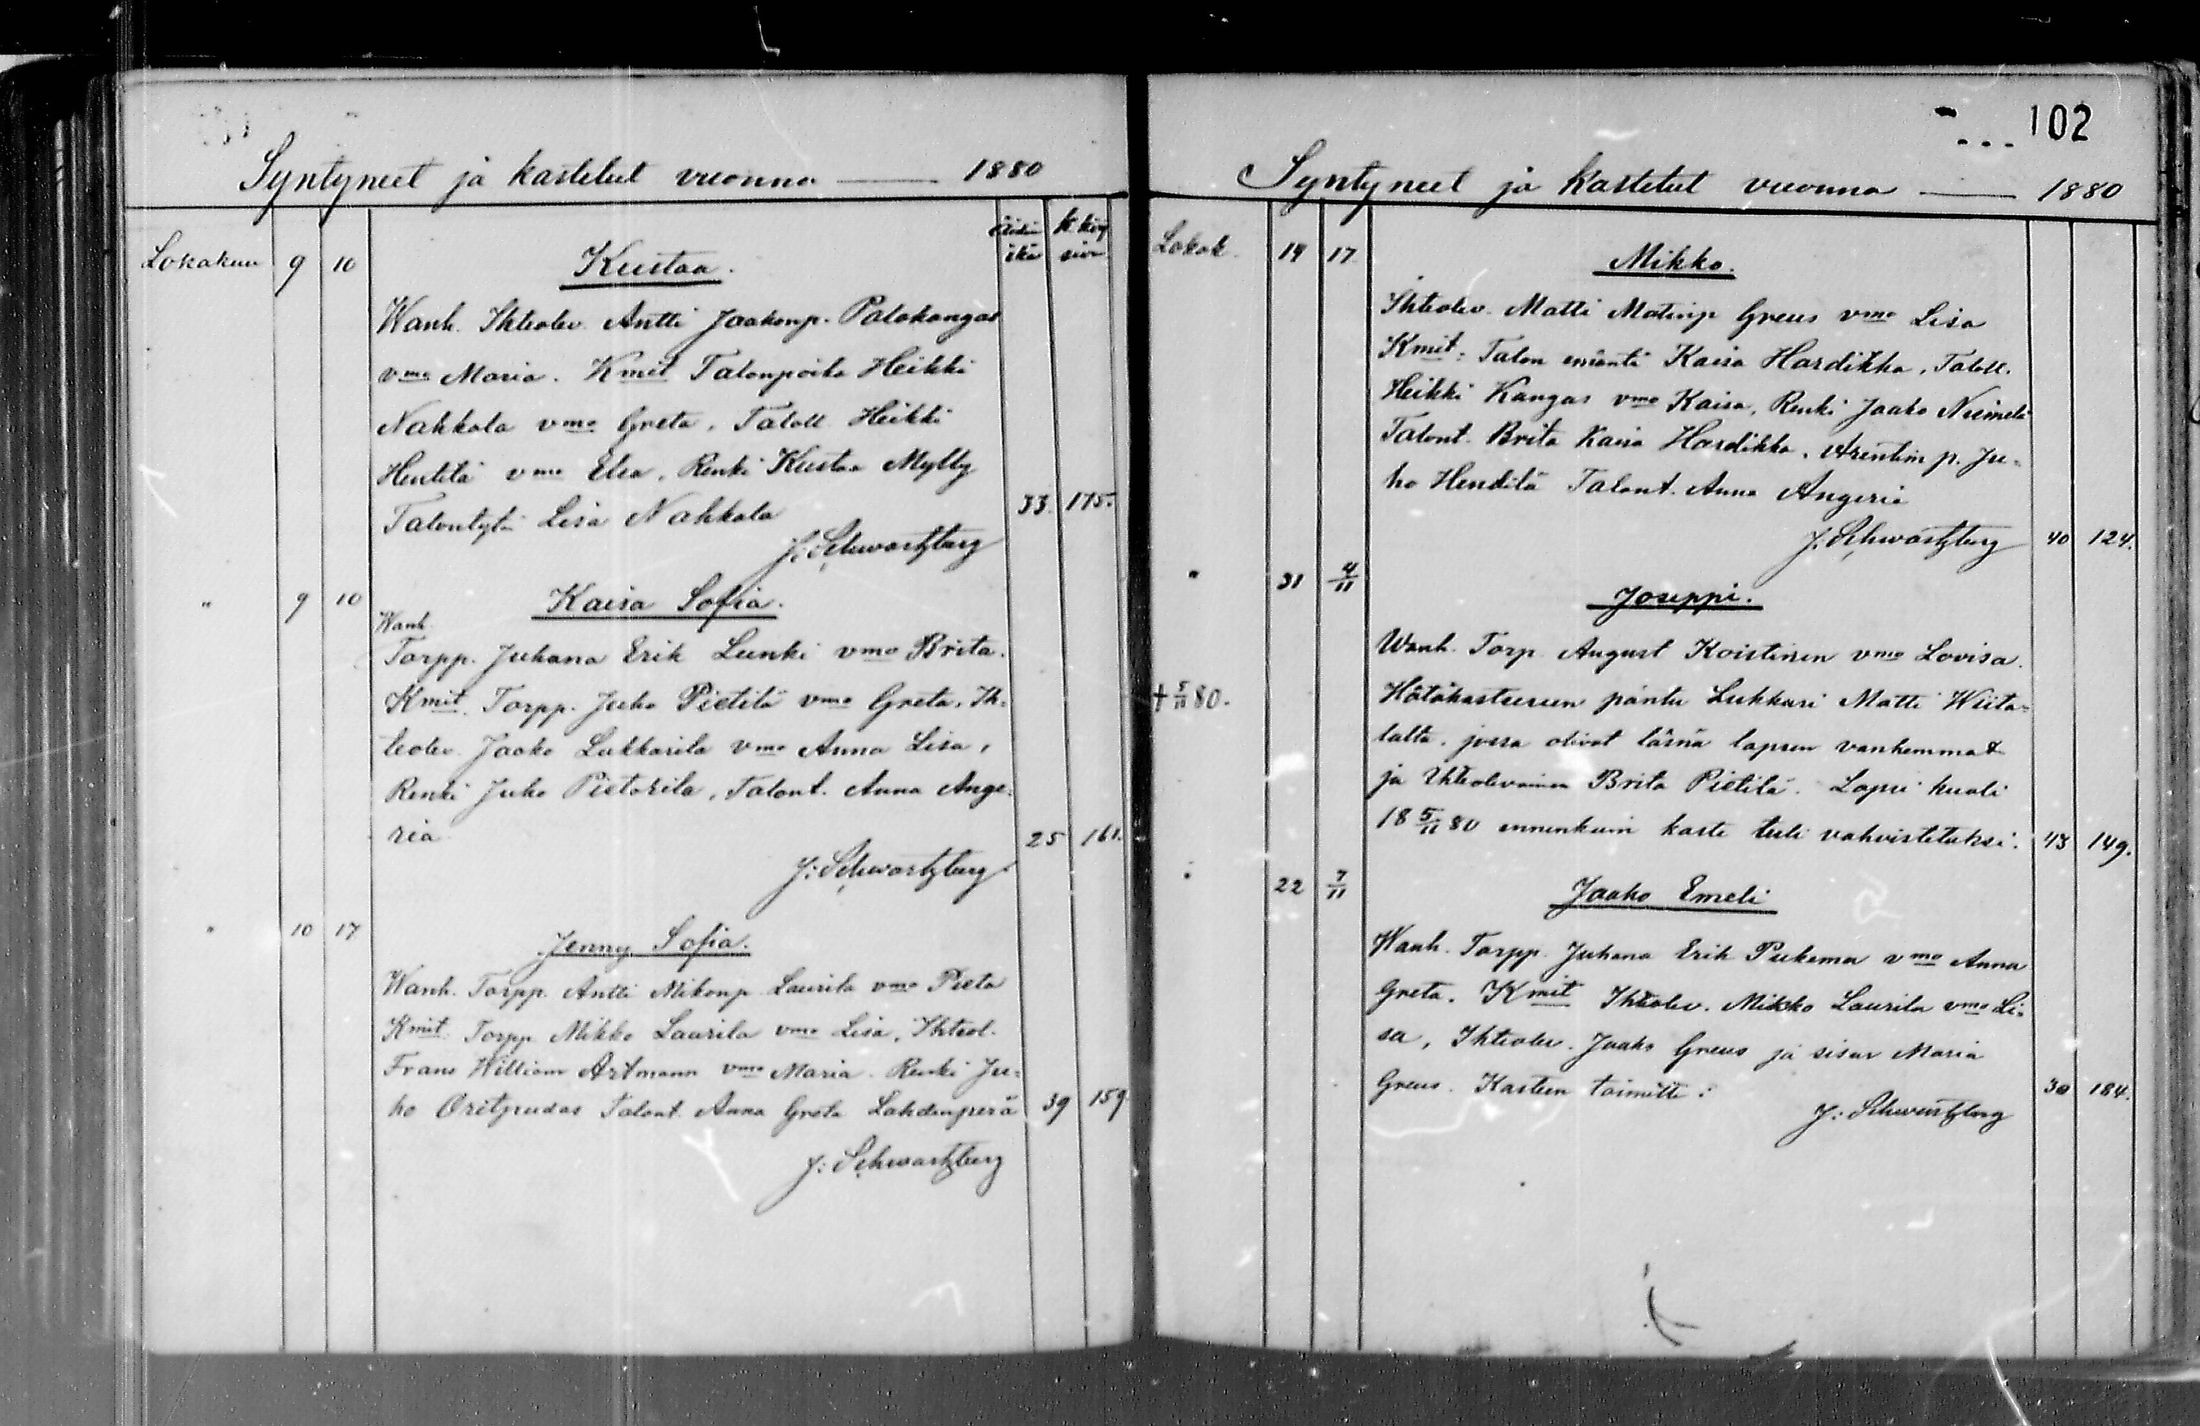 Syntyneet ja kastetut vuonna — 1880
Äidin ikä K.kirj. sivu
Lokakuu 9 10 Kustaa.
Wanh. Ihteolev. Antti Jaakonp. Palokangas
vmo Maria. Kmit Talonpoika Heikki
Nahkala vmo Greta, Taloll. Heikki
Henttilä vmo Elsa, Renki Kustaa Mylly
Talontytö Lisa Nahkala 33. 175.
J: Schwartzberg
" 9 10 Kaisa Sofia.
Wanh.
Torpp. Juhana Erik Lunki vmo Brita.
Kmit. Torpp. Juho Pietilä vmo Greta, Ih-
teolev. Jaako Lukkarila vmo Anna Lisa,
Renki Juho Pietarila, Talont. Anna Ange-
ria 25 161.
J: Schwartzberg
" 10 17 Jenny Sofia.
Wanh. Torpp. Antti Mikonp. Laurila vmo Pieta
Kmit. Torpp. Mikko Laurila vmo Lisa, Ihteol.
Frans William Artmann vmo Maria. Renki Ju-
ho Oritpudas Talont. Anna Greta Lahdenperä 39 159.
J: Schwartzberg
102
Syntyneet ja kastetut vuonna — 1880
Lokak. 14 17 Mikko.
Ihteolev. Matti Matinp Greus vmo Lisa
Kmit: Talon emäntä Kaisa Hardikka, Taloll.
Heikki Kangas vmo Kaisa, Renki Jaako Niemelä
Talont. Brita Kaisa Hardikka, Arentin p. Ju-
ho Hendilä Talont. Anna Angeria
J: Schwartzberg 40 124.
" 31 4/11 Joseppi.
Wanh. Torp. August Koistinen vmo Lovisa.
+ 5/11 80. Hätäkasteesen pantu Lukkari Matti Wiita-
lalta, jossa olivat läsnä lapsen vanhemmat
ja Ihteolevainen Brita Pietilä. Lapsi kuoli
18 5/11 80 ennenkuin kaste tuli vahvistetuksi. 43 149.
" 22 7/11 Jaako Emeli
Wanh. Torpp. Juhana Erik Pukema vmo Anna
Greta. Kmit Ihteolev. Mikko Laurila vmo Li-
sa, Ihteolev. Jaako Greus ja sisar Maria
Greus. Kasteen toimitti: 30 184.
J: Schwartzberg